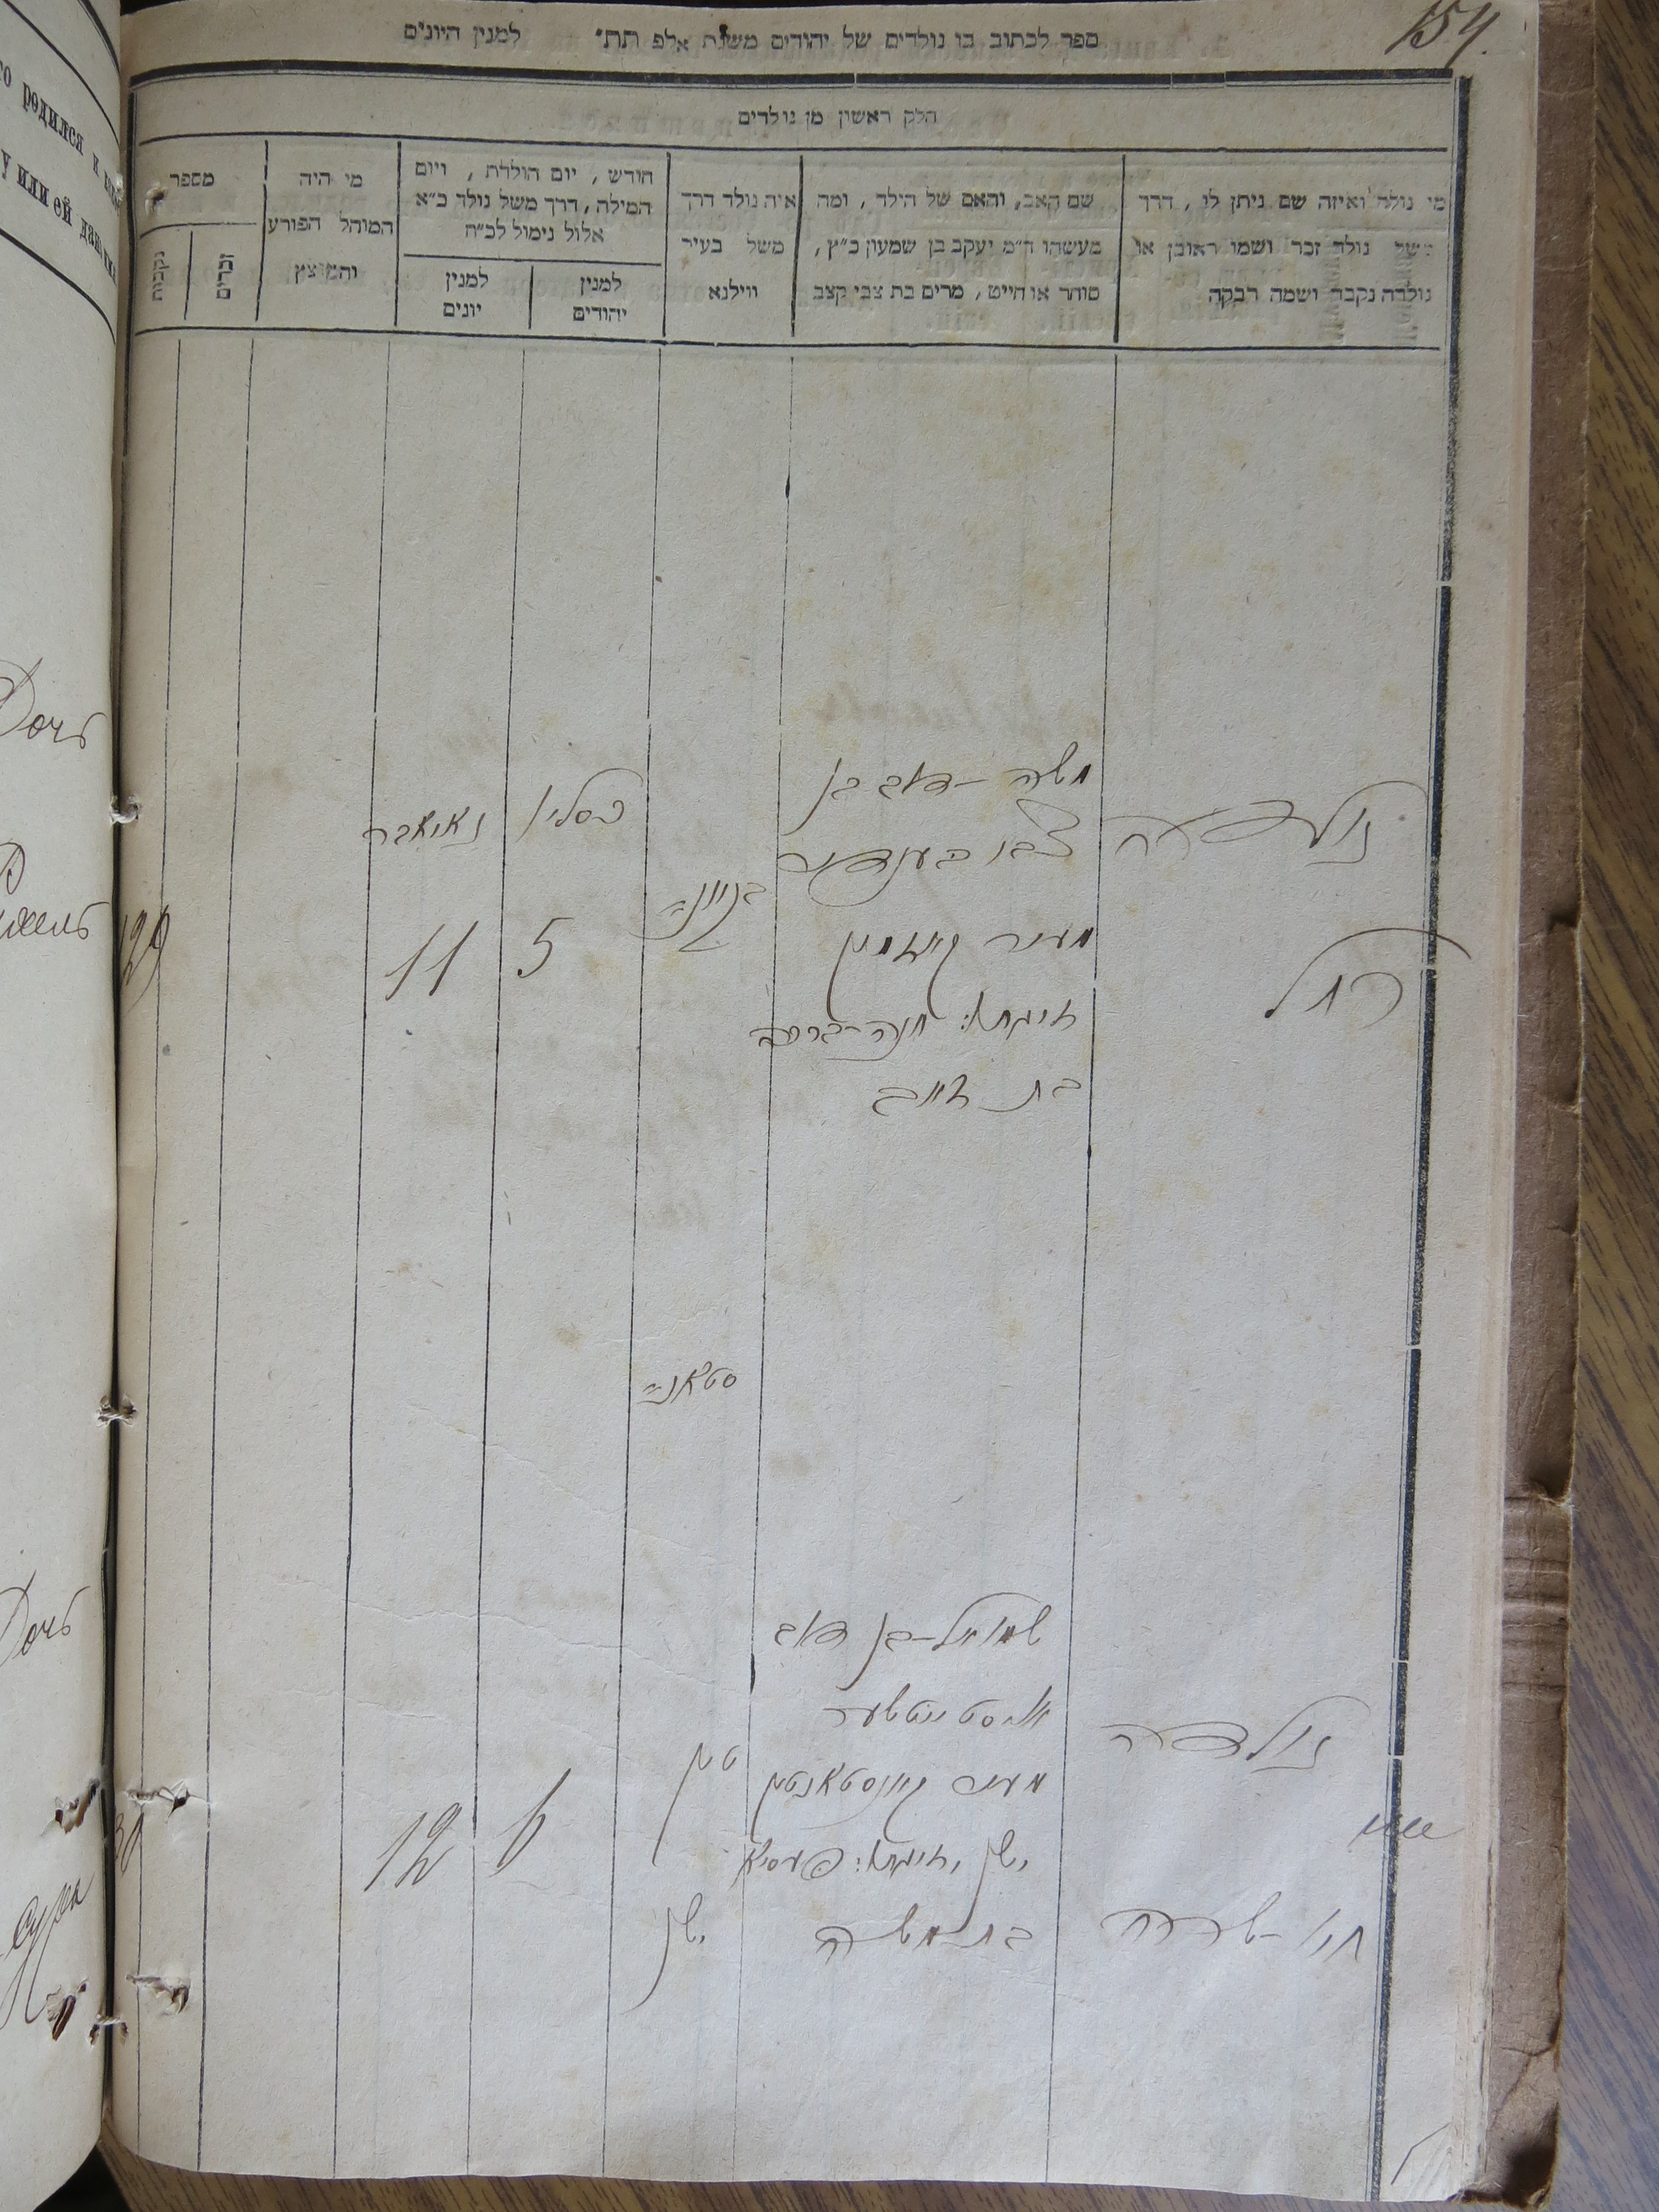 154.
ספר לכתוב בו נולדים של יהודים משנת אלפ תת״ למנין היונים
חלק ראשון מן נולדים
מי נולד ואיזה שם ניתן לו, דרך
משל נולד זכר ושמו ראובן או
נולדה נקבה ושמה רבקה
שם האב, והאם של הילד, ומה
מעשהו ה״מ יעקב בן שמעון כ״ץ,
סוחר או חייט, מרים בת צבי קצב
איה נולד דרך
משל בעיר
ווילנא
חודש, יום הולדת, ויום
המילה, דרך משל נולד כ״א
אלול נימול לכ״ח
למנין
יהודים
למנין
יונים
מי היה
המוהל הפורע
והמוצץ
מספר
זכרים
נקבות
נולדה
רחל
משה דוב בן
צבי
מעיר
חנה
בת זאב
כסליו
5
נאיאבר
11
129
סטאני=
נולדה
חיו שרה
שמואל בן דוב
מעיר קאנסטאנטין
ישן
בת משה
טין
ישן
6
12
30
го родился и
у или ей дано
Дочь
Дочь
Сура